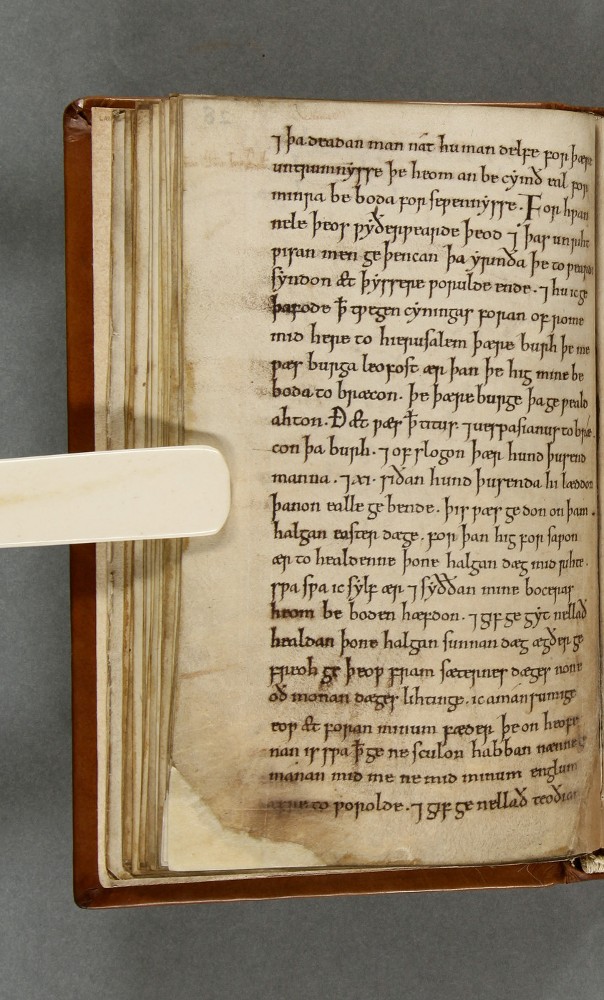 ⁊ þa deadan man nát hu man delfe for þære
untrumnẏsse þe heom an be cẏmð eal for
minra be boda forsepennẏsse. For hƿan
nele þeos ƿẏðerƿearde þeod ⁊ þas unriht
ƿisan men ge þencan þa ẏrmða þe
sẏndon æt þẏssere ƿorulde ende. ⁊ hu ic ge
þafode ꝥ tƿegen cẏningas foran of rome
mid here to hierusalem þære burh þe me
ƿæs burga leofost ær þan þe hig mine be
boda to bræcon. þe þære burge þa ge ƿeald
ahton. Ðæt ƿæs ꝥ titus. ⁊ uespasianus to bræ
con þa burh. ⁊ of slogon þær hund þusend
manna. ⁊ xi. siðan hund þusenda hi læddon
þanon ealle ge bende. þis ƿæs ge don on þam
halgan easter dæge. for þan hig for saƿon
ær to healdenne þone halgan dæg mid rihte.
sƿa sƿa ic sẏlf ær ⁊ sẏððan mine boceras
heom be boden hæfdon. ⁊ gif ge gẏt nellað
healdan þone halgan sunnan dæg ægðer ge
freoh ge þeoƿ fram sæternes dæges none
oð monan dæges lihtinge. ic amansumige
eoƿ æt foran minum fæder þe on heofe
nan is sƿa ꝥ ge ne sculon habban nænne
manan mid me ne mid minum englum
to ƿorolde. ⁊ gif ge nellað teoðian